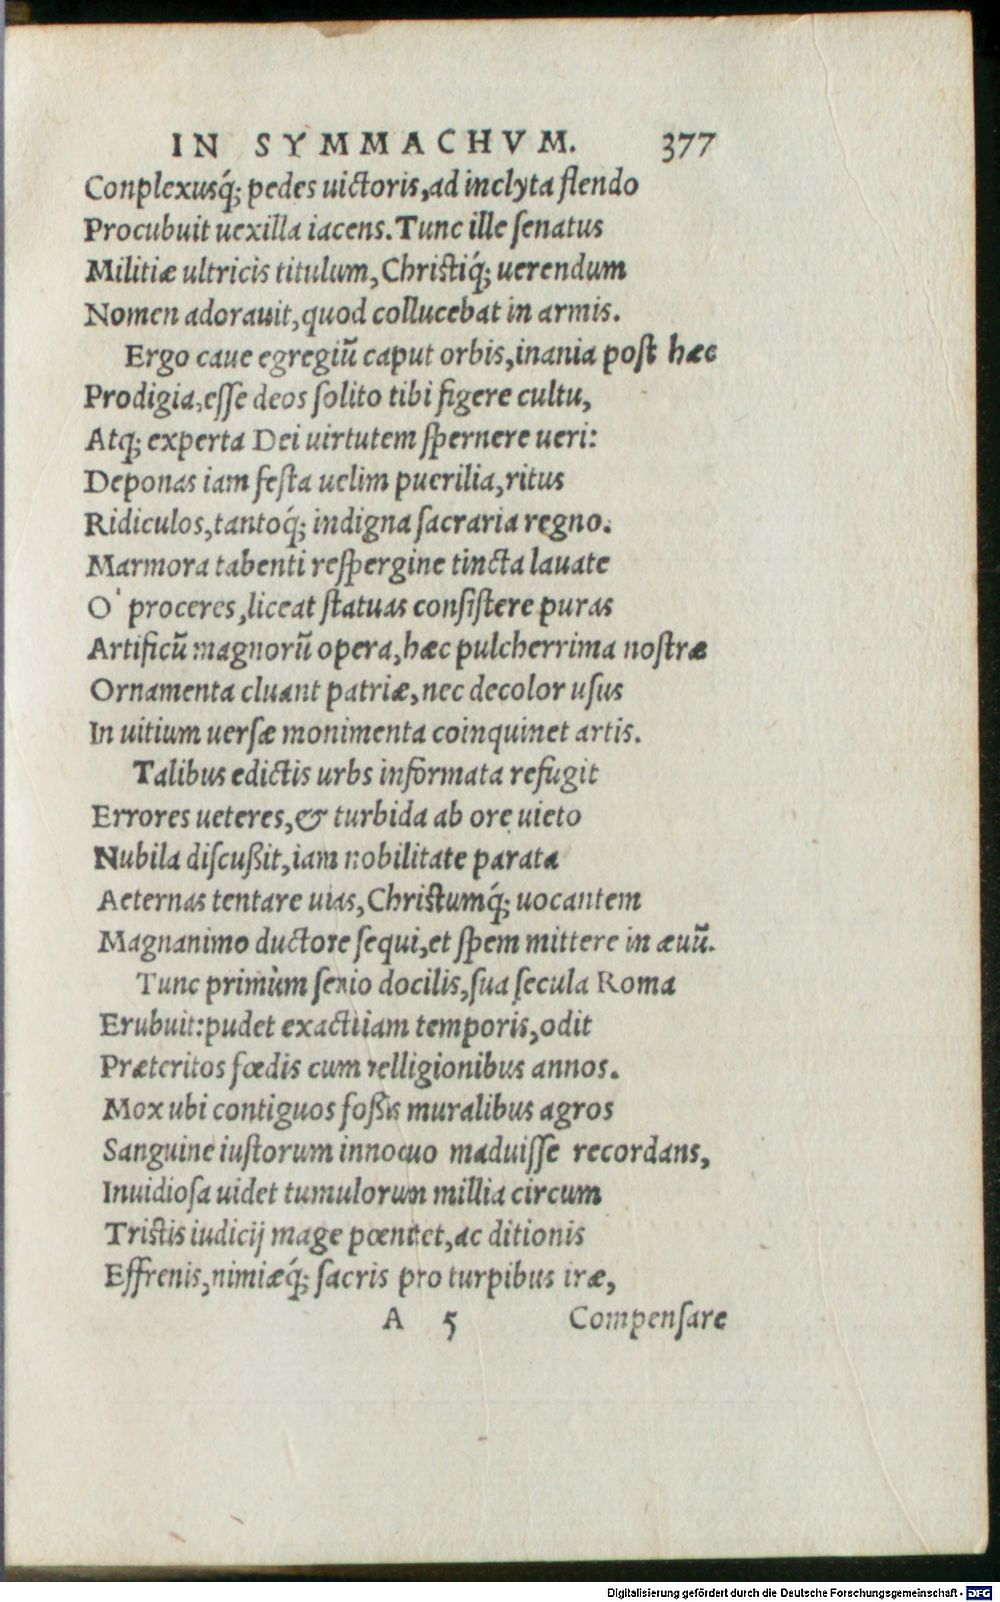 IN SYMMACHVM. 377
Conplexusq́; pedes uictoris, ad inclyta flendo
Procubuit uexilla iacens. Tunc ille ſenatus
Militiæ ultricis titulum, Chriſtiq́; uerendum
Nomen adorauit, quod collucebat in armis.
Ergo caue egregiũ caput orbis, inania poſt hæc
Prodigia, eſſe deos ſolito tibi figere cultu,
Atq; experta Dei uirtutem ſpernere ueri:
Deponas iam feſta uelim puerilia, ritus
Ridiculos, tantoq́; indigna ſacraria regno.
Marmora tabenti reſpergine tincta lauate
O' proceres, liceat ſtatuas conſiſtere puras
Artificũ magnorũ opera, hæc pulcherrima noſtræ
Ornamenta cluant patriæ, nec decolor uſus
In uitium uerſæ monimenta coinquinet artis.
Talibus edictis urbs informata refugit
Errores ueteres, & turbida ab ore uieto
Nubila diſcußit, iam nobilitate parata
Aeternas tentare uias, Chriſtumq́; uocantem
Magnanimo ductore ſequi, et ſpem mittere in æuũ.
Tunc primùm ſenio docilis, ſua ſecula Roma
Erubuit: pudet exacti iam temporis, odit
Præteritos fœdis cum relligionibus annos.
Mox ubi contiguos foßis muralibus agros
Sanguine iuſtorum innocuo maduiſſe recordans,
Inuidioſa uidet tumulorum millia circum
Triſtis iudicij mage pœnitet, ac ditionis
Effrenis, nimiæq́; ſacris pro turpibus iræ,
A 5 Compenſare
Digitalisierung gefördert durch die Deutsche Forschungsgemeinschaft - DFG